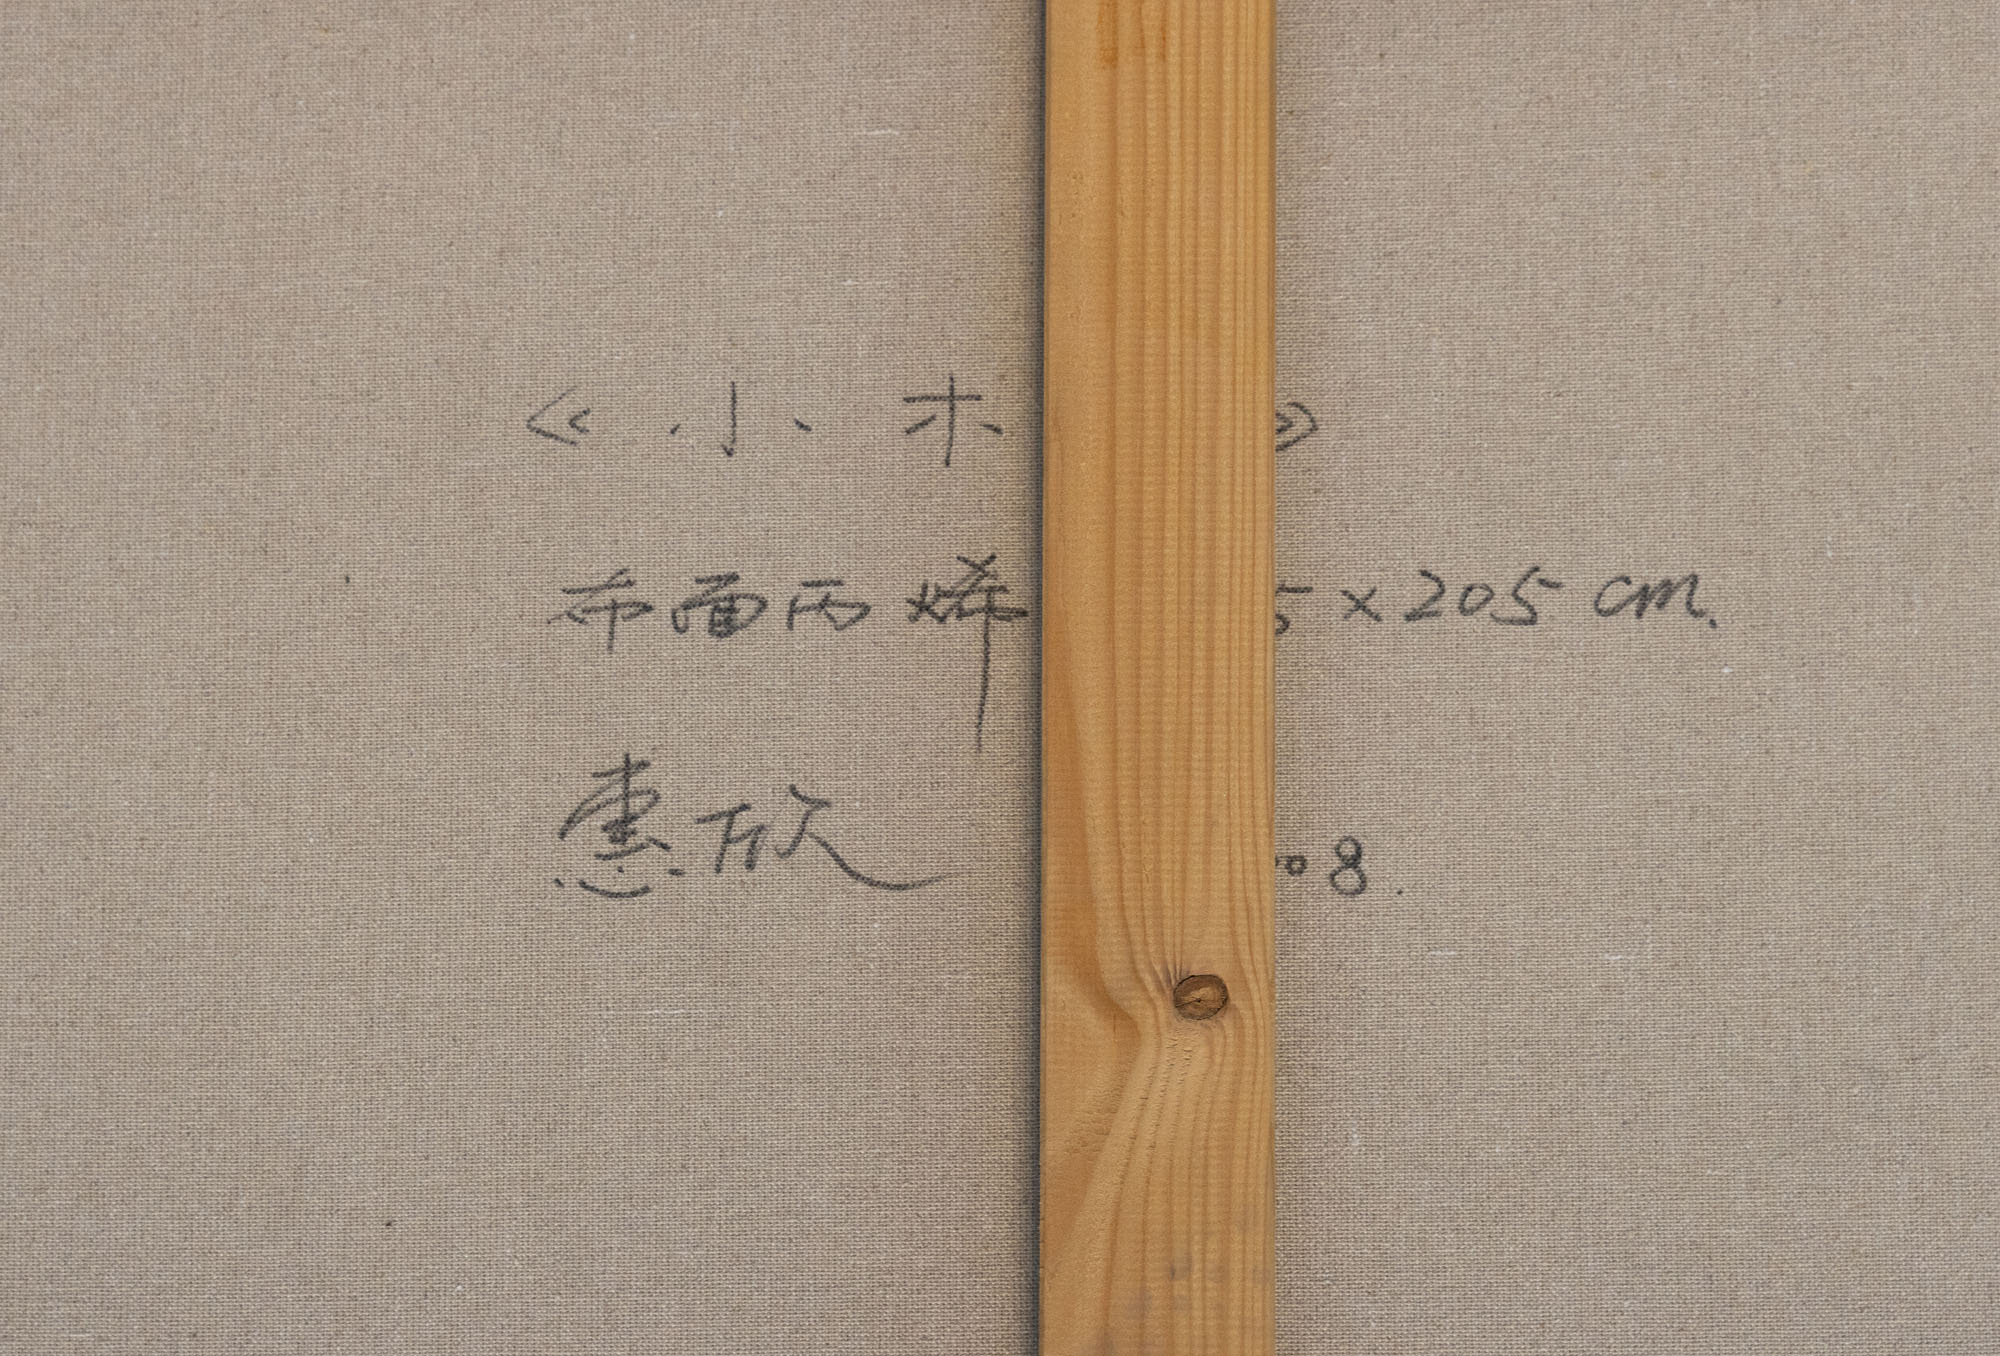 《小木》
布面丙烯 5×205cm.
惠欣 008.